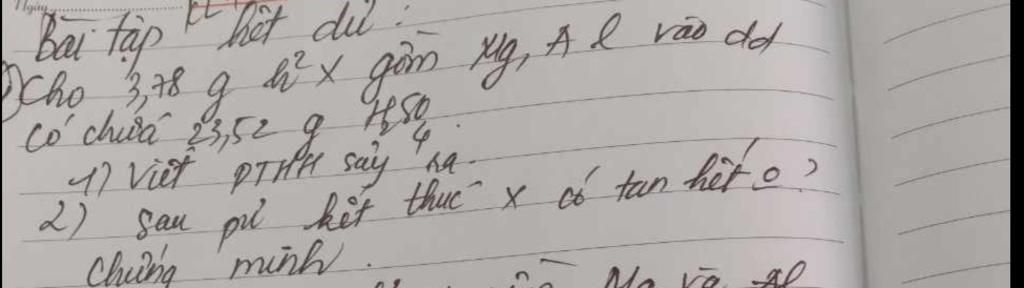 Ngày
Bài tập KL hết dư :
1) Cho 3,78 g h² X gồm Mg, Al vào dd
có chứa 23,52 g H2SO4.
1) Viết PTHH sảy ra.
2) Sau pư kết thúc X có tan hết o ?
Chứng minh.
Mg và Al